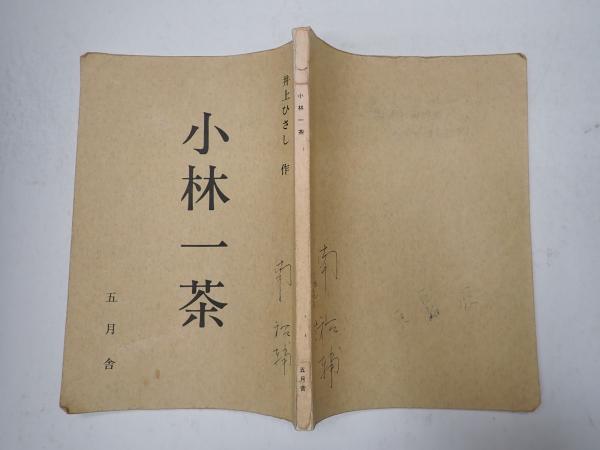 井上ひさし 作
小林一茶
五月舎
南 祐輔
小林一茶
五月舎
南 祐輔